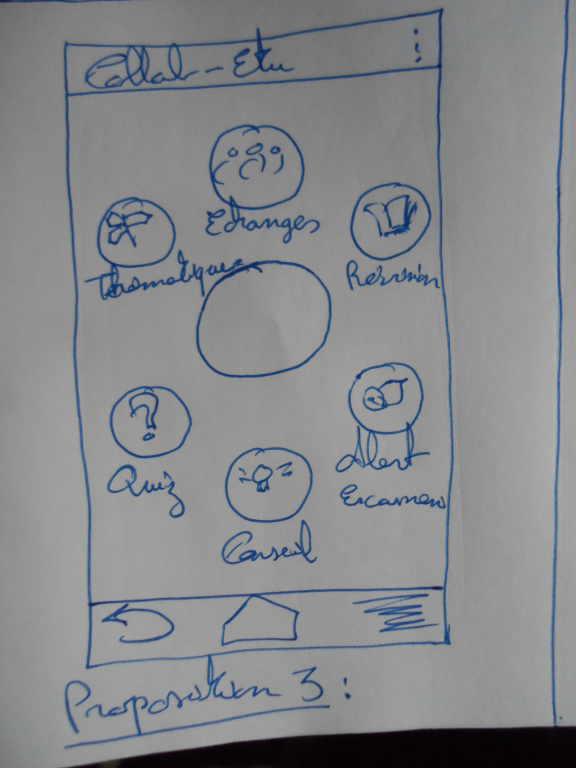 Collab-Etu
Echanges
Thématiques
Révision
?
Quiz
Alert
Examens
Conseil
Proposition 3 :